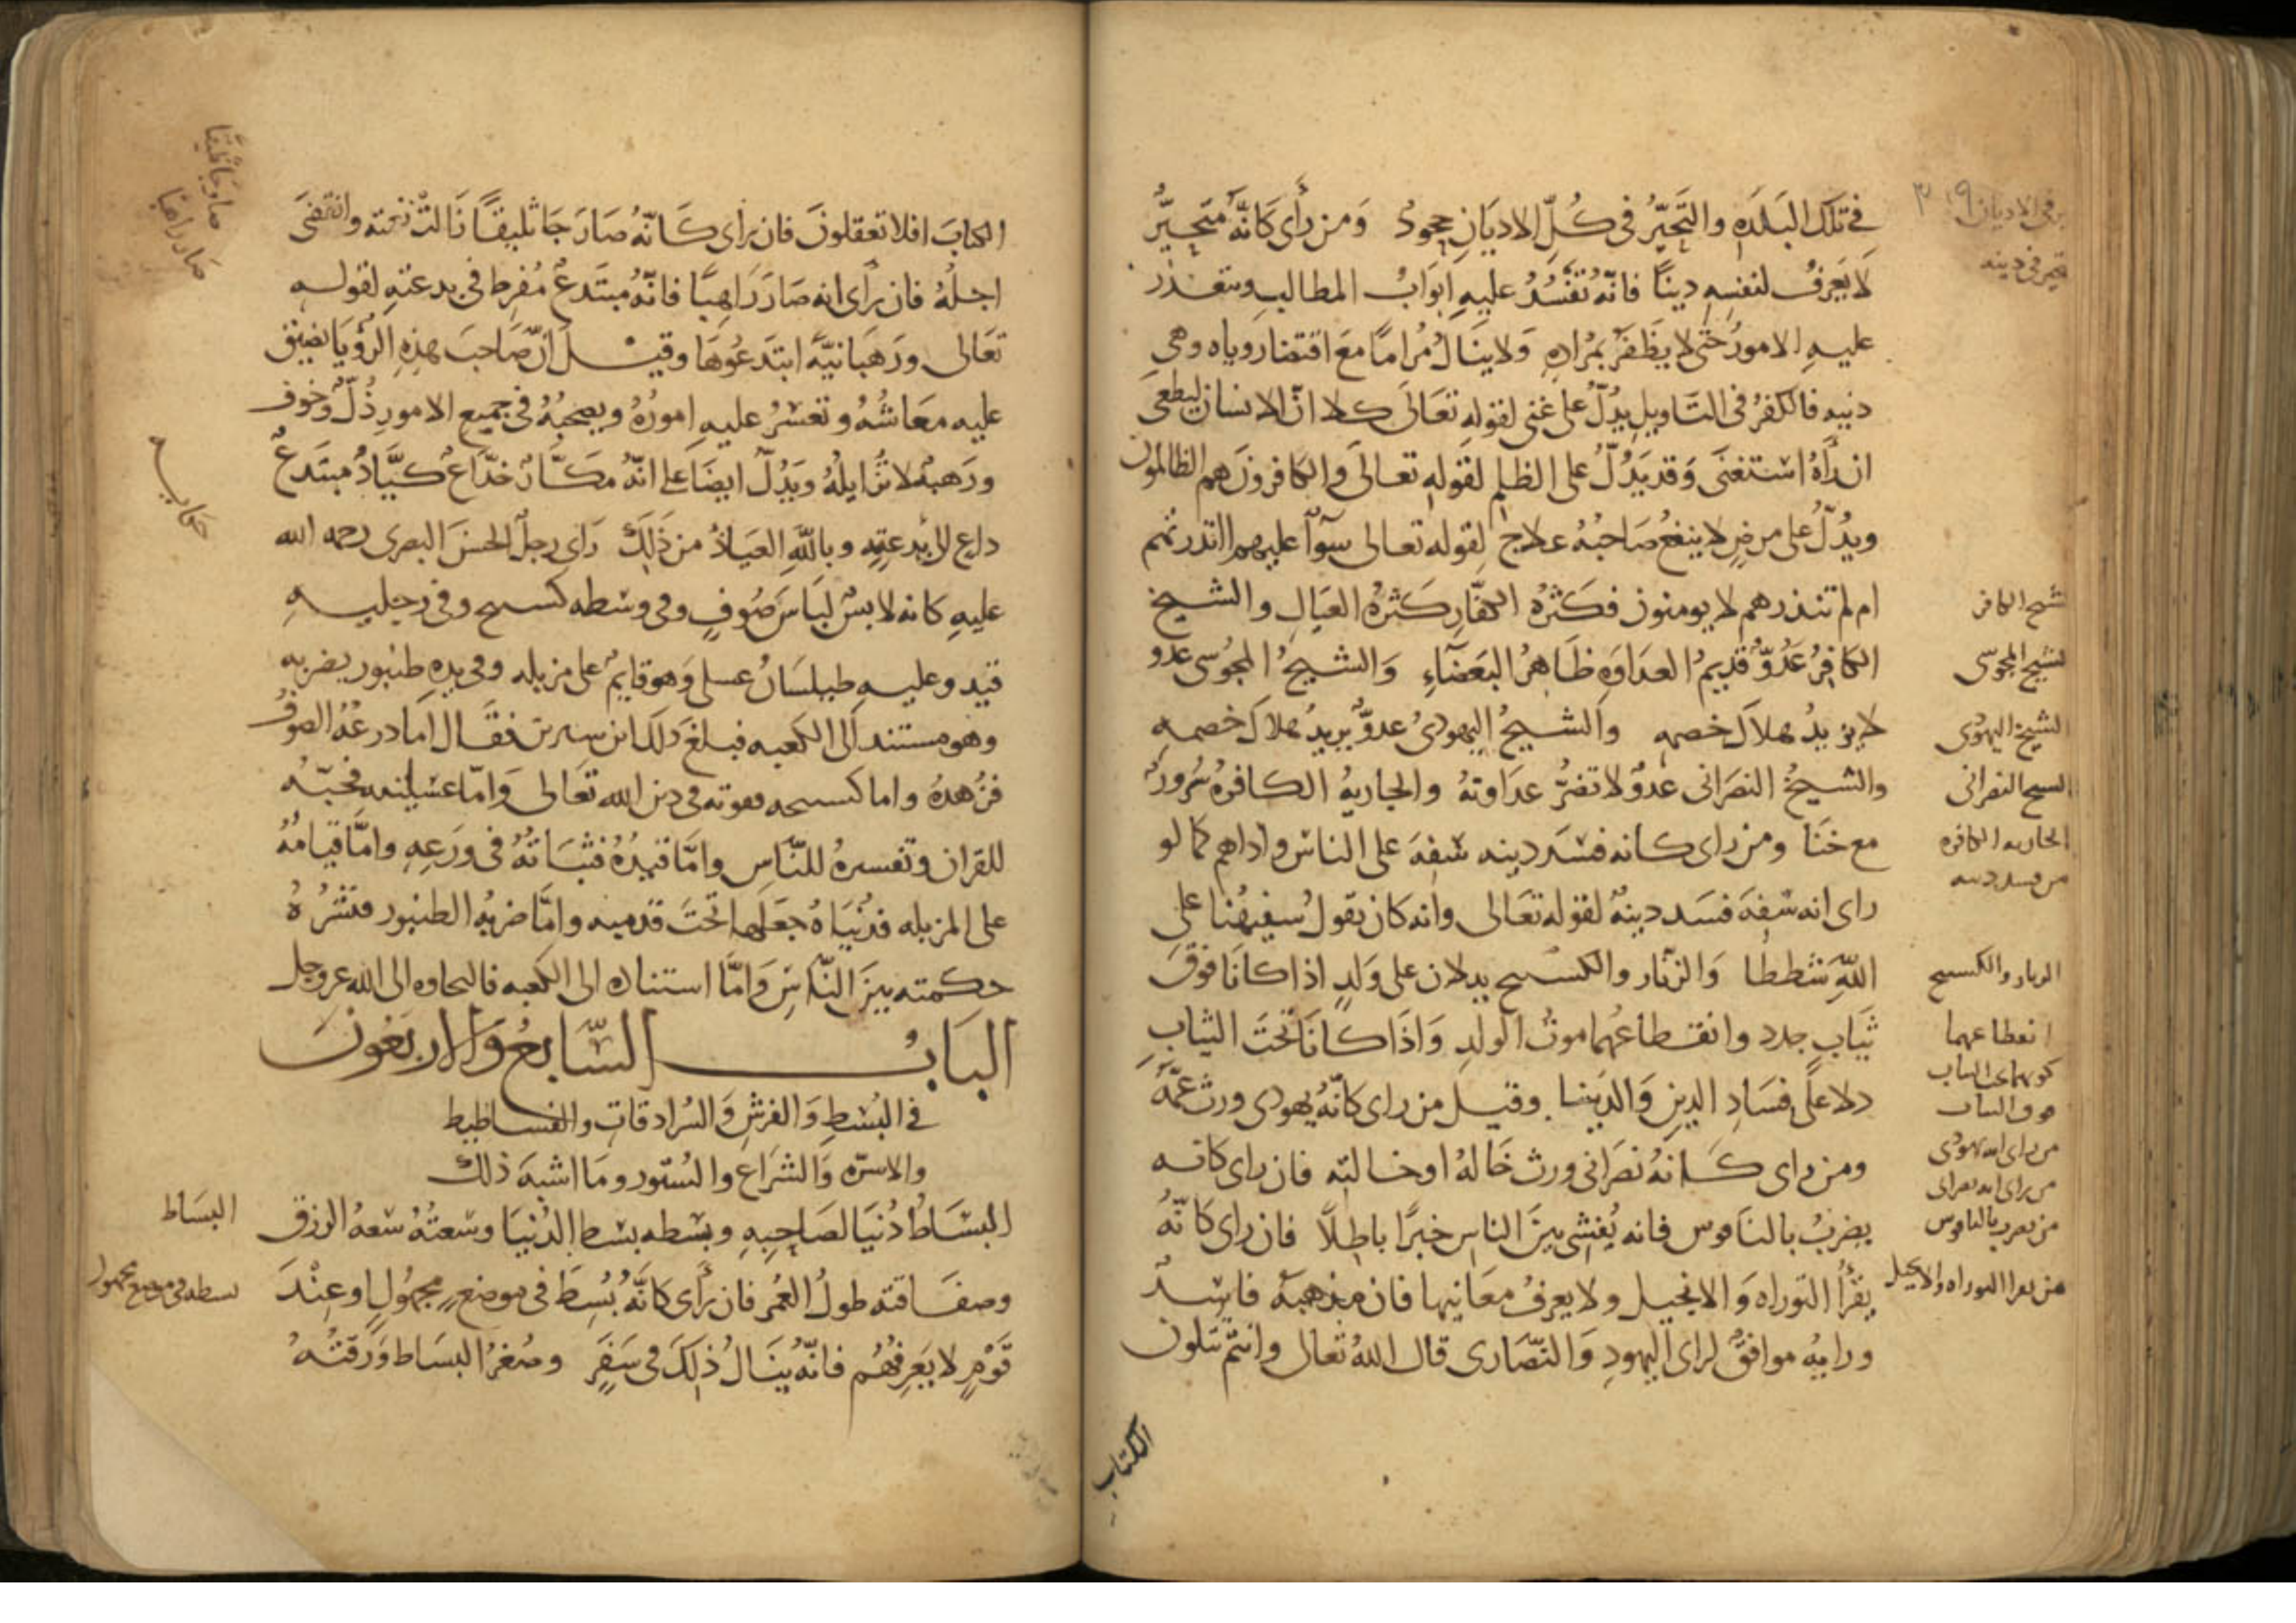 في تلك البلده والتحيّر في كلّ الاديان جحودٌ ومن رأى كانّه متحيّر
لا يعرف لنفسه دينًا فانّه تنسدّ عليه ابواب المطالب وتتعذر
عليه الامور حتى لا يظفر بمراده ولا ينال مرامًا مع اقتضا روياه وهي
دنيه فالكفر في التاويل يدلّ على غنى لقوله تعالى كلا انّ الانسان ليطغى
ان رأه استغنى وقد يدلّ على الظلم لقوله تعالى والكافرون هم الظالمون
ويدلّ على مرض لا ينفع صاحبه علاج لقوله تعالى سوآ عليهم اانذرتهم
ام لم تنذرهم لا يومنون فكثرة الكفّار كثرة العيال والشيخ
الكافر عدوّ قديم العداوه ظاهر البغضآء والشيخ المجوسى عدو
لا يريد هلاك خصمه والشيخ اليهودى عدوّ يريد هلاك خصمه
والشيخ النصرانى عدوٌ لا تضرّ عداوته والجاريه الكافره سرورٌ
مع خنا ومن راى كانه فسد دينه سفه على الناس واداهم كما لو
راى انه سفه فسد دينه لقوله تعالى وانه كان يقول سفيهنا على
اللّه شططا والزنّار والكسيح يدلان على ولدٍ اذا كانا فوق
ثياب جدد وانقطاعهما موت الولد واذا كانا تحت الثياب
دلا على فساد الدين والدينا وقيل من راى كانّه يهودى ورث عمّه
ومن راى كانه نصرانى ورث خاله او خالته فان راى كانه
يضرب بالناقوس فانه يُفشى بين الناس خبرًا باطلًا فان راى كانّه
يقرأ التوراه والانجيل ولا يعرف معانيها فان مذهبه فاسدٌ
ورايه موافقٌ لراى اليهود والنّصارى قال الله تعالى وانتم تتلون
الكتاب
٣١٩
تحير في دينه
الشيخ الكافر
الشيخ المجوسى
الشيخ اليهودى
الشيخ النصرانى
الجاريه الكافره
من فسد دينه
الزنار والكسيح
انقطاعهما
كونهما تحت الثياب
فوق الثياب
من راى انه يهودى
من راى انه نصرانى
من يضرب بالناقوس
من يقرا التوراه والانجيل
الكتاب افلا تعقلون فان رأى كانّه صار جاثليقًا زالت نعمته وانقضى
اجله فان رأى انه صار راهبًا فانّه مبتدعٌ مُفرط في بدعته لقوله
تعالى ورهبانيّه ابتدعوها وقيل انّ صاحب هذه الرؤيا يضيق
عليه معاشه وتعسر عليه اموره ويصحبه في جميع الامور ذلٌّ وخوف
ورهبة لا تزايله ويدلّ ايضًا على انّه مكّارٌ خدّاعٌ كيّادٌ مبتدعٌ
داع الى بدعته وباللّه العياذ من ذلك راى رجل الحسن البصرى رحمه الله
عليه كانه لابس لباس صوفٍ وفى وسطه كسيح وفى رجليه
قيد وعليه طيلسان عسلى وهو قايم على مزبله وفى يده طنبور يضربه
وهو مستند الى الكعبه فبلغ ذلك ابن سيرين فقال اما درعه الصوف
فزهده واما كسيحه فقوته فى دين الله تعالى وامّا عسليته فحبّه
للقران وتفسيره للنّاس وامّا قيده فثباته فى ورعه وامّا قيامه
على المزبله فدنياه جعلها تحت قدميه وامّا ضربه الطنبور فنشره
حكمته بين النّاس وامّا استناده الى الكعبه فالتجاوه الى الله عز وجل
البابُ السّابعُ والاربعون
في البُسط والفرش والسُرادقات والفساطيط
والاسرّه والشراع والستور وما اشبه ذلك
البساط دُنيا لصاحبه وبسطه بسط الدنيا وسعته سعه الرزق
وصفاقته طول العمر فان رأى كانّه بُسط في موضعٍ مجهولٍ او عند
قومٍ لا يعرفهم فانّه ينال ذلك فى سفرٍ وصغر البساط ورقته
صار جاثليقا
صار راهبا
حكايه
البساط
بسطه فى موضع مجهول